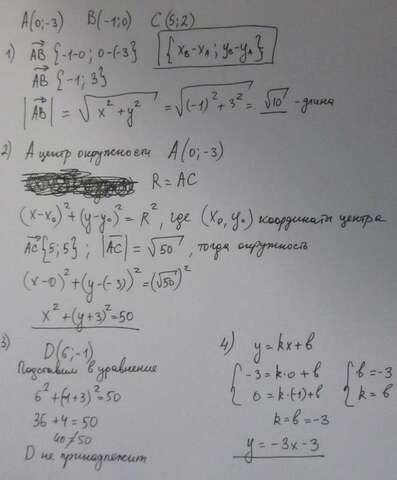 A(0;-3) B(-1;0) C(5;2)
1) AB {-1-0; 0-(-3)} {x_B-x_A; y_B-y_A}
AB {-1; 3}
|AB| = √x²+y² = √(-1)²+3² = √10 - длина
2) A центр окружности A(0;-3)
R = AC
(x-x₀)²+(y-y₀)² = R², где (x₀, y₀) координаты центра
AC {5;5}; |AC| = √50, тогда окружность
(x-0)²+(y-(-3))² = (√50)²
x²+(y+3)²=50
3) D(6;-1)
Подставим в уравнение
6²+(-1+3)²=50
36+4=50
40≠50
D не принадлежит
4) y=kx+b
{ -3=k·0+b { b=-3
0=k·(-1)+b k=b
k=b=-3
y=-3x-3